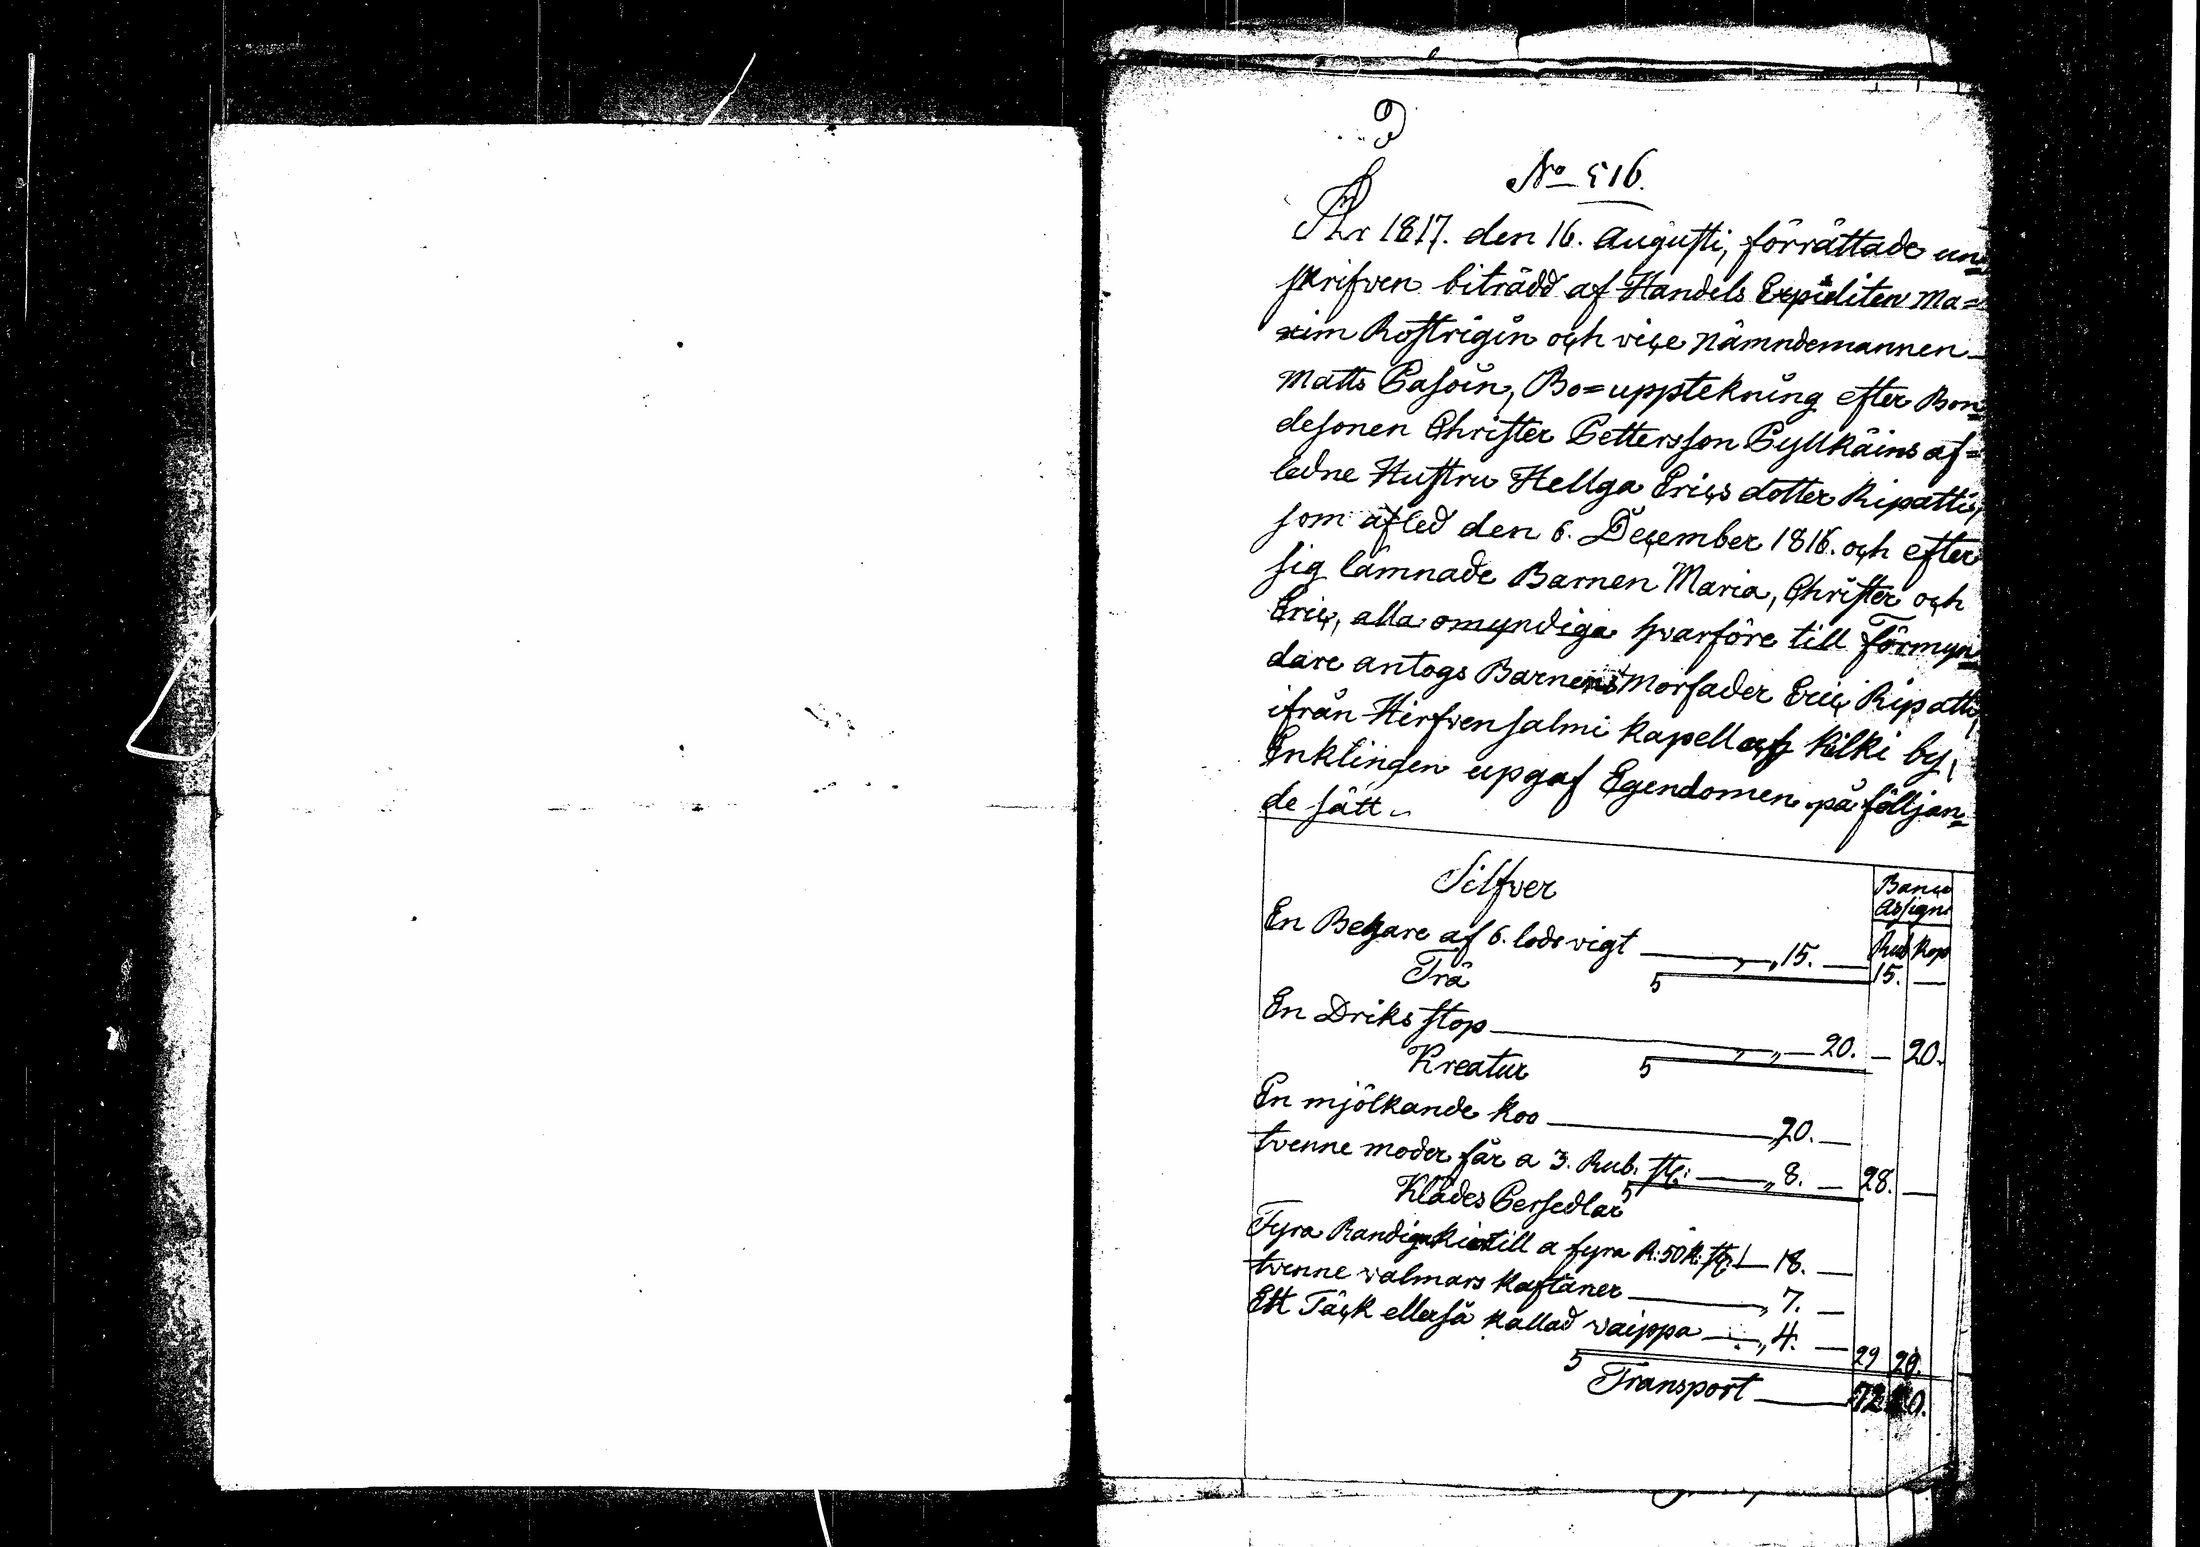 No 516.
År 1817. den 16. Augusti, förrättade un=
skrifven biträdd af Handels Expediten Ma=
xim Rostrigin och vice Nämndemannen
Matts Pasoin, Bo=uppteckning efter Bon=
desonen Christer Pettersson Pyllkäins af=
ledne Hustru Hellga Erics dotter Ripatti,
som afled den 6. December 1816. och efter
sig lämnade Barnen Maria, Christer och
Eric, alla omyndiga hvarföre till Förmyn=
dare antogs Barnens Morfader Eric Ripatti,
ifrån Hirfvensalmi kapell och Kilki by,
Enklingen upgaf Egendomen på följjan=
de sätt
Silfver Banco Assign:
En Begare af 6. lods vigt 15. — Rub Kop
Trä 5 15. —
En Driks stop — 20. — 20.
Kreatur 5
En mjölkande Koo 20. —
tvenne moder får a 3. Rub. st: 8. — 28. —
Klädes Persedlar 5
Fyra Randiga Kiortill a fyra R: 50 K: st: 18. —
tvenne valmars Kaftaner 7. —
Ett Täck eller så kallad vaippa 4. — 29 20.
5 Transport 72 20.